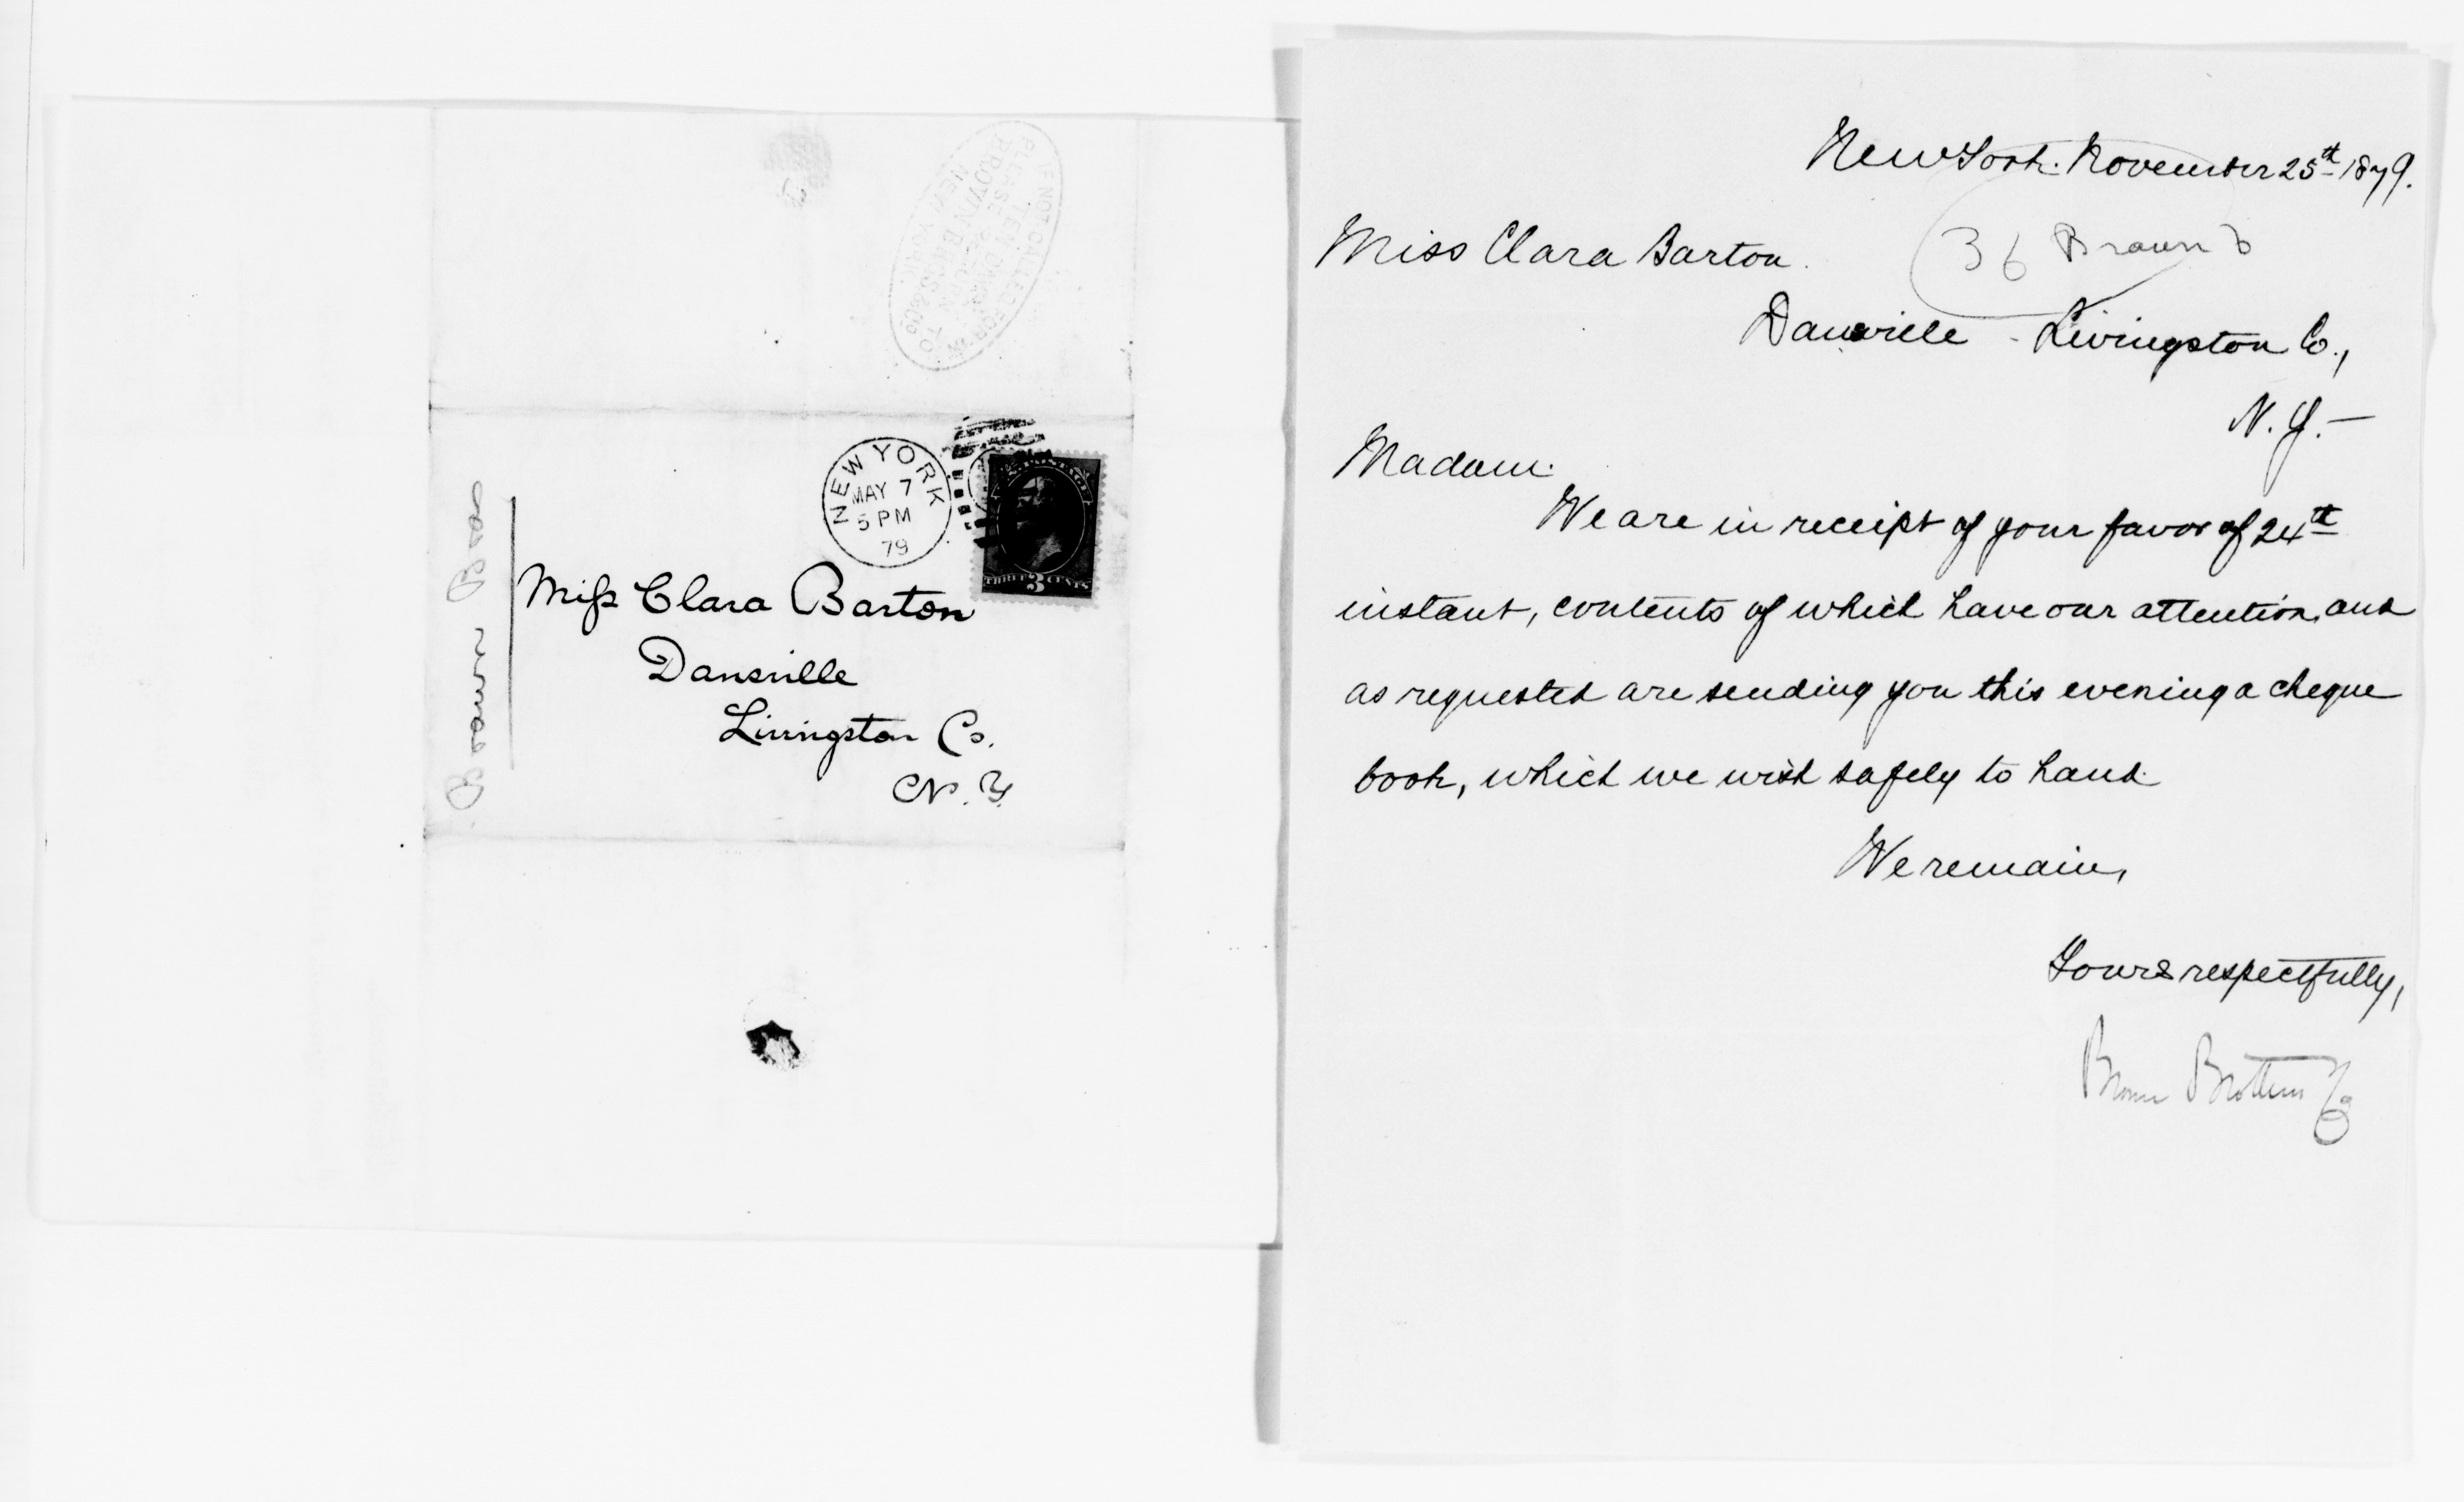 IF NOT CALLED FOR IN
TEN DAYS
PLEASE RETURN TO
BROWN BROS & CO
NEW YORK
NEW YORK
MAY 7
5 PM
79
THREE 3 CENTS
Brown Bros
Miss Clara Barton
Dansville
Livingston Co.
N. Y.
New York. November 25th 1879.
36 Brown b
Miss Clara Barton.
Dansville - Livingston Co.,
N. Y. —
Madam.
We are in receipt of your favor of 24th
instant, contents of which have our attention, and
as requested are sending you this evening a cheque
book, which we wish safely to hand.
We remain,
Yours respectfully,
Brown Brothers Co